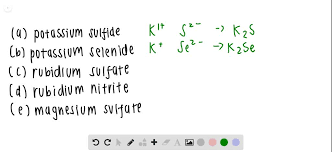 (a) potassium sulfide K¹⁺ S²⁻ → K₂S
(b) potassium selenide K⁺ Se²⁻ → K₂Se
(c) rubidium sulfate
(d) rubidium nitrite
(e) magnesium sulfate